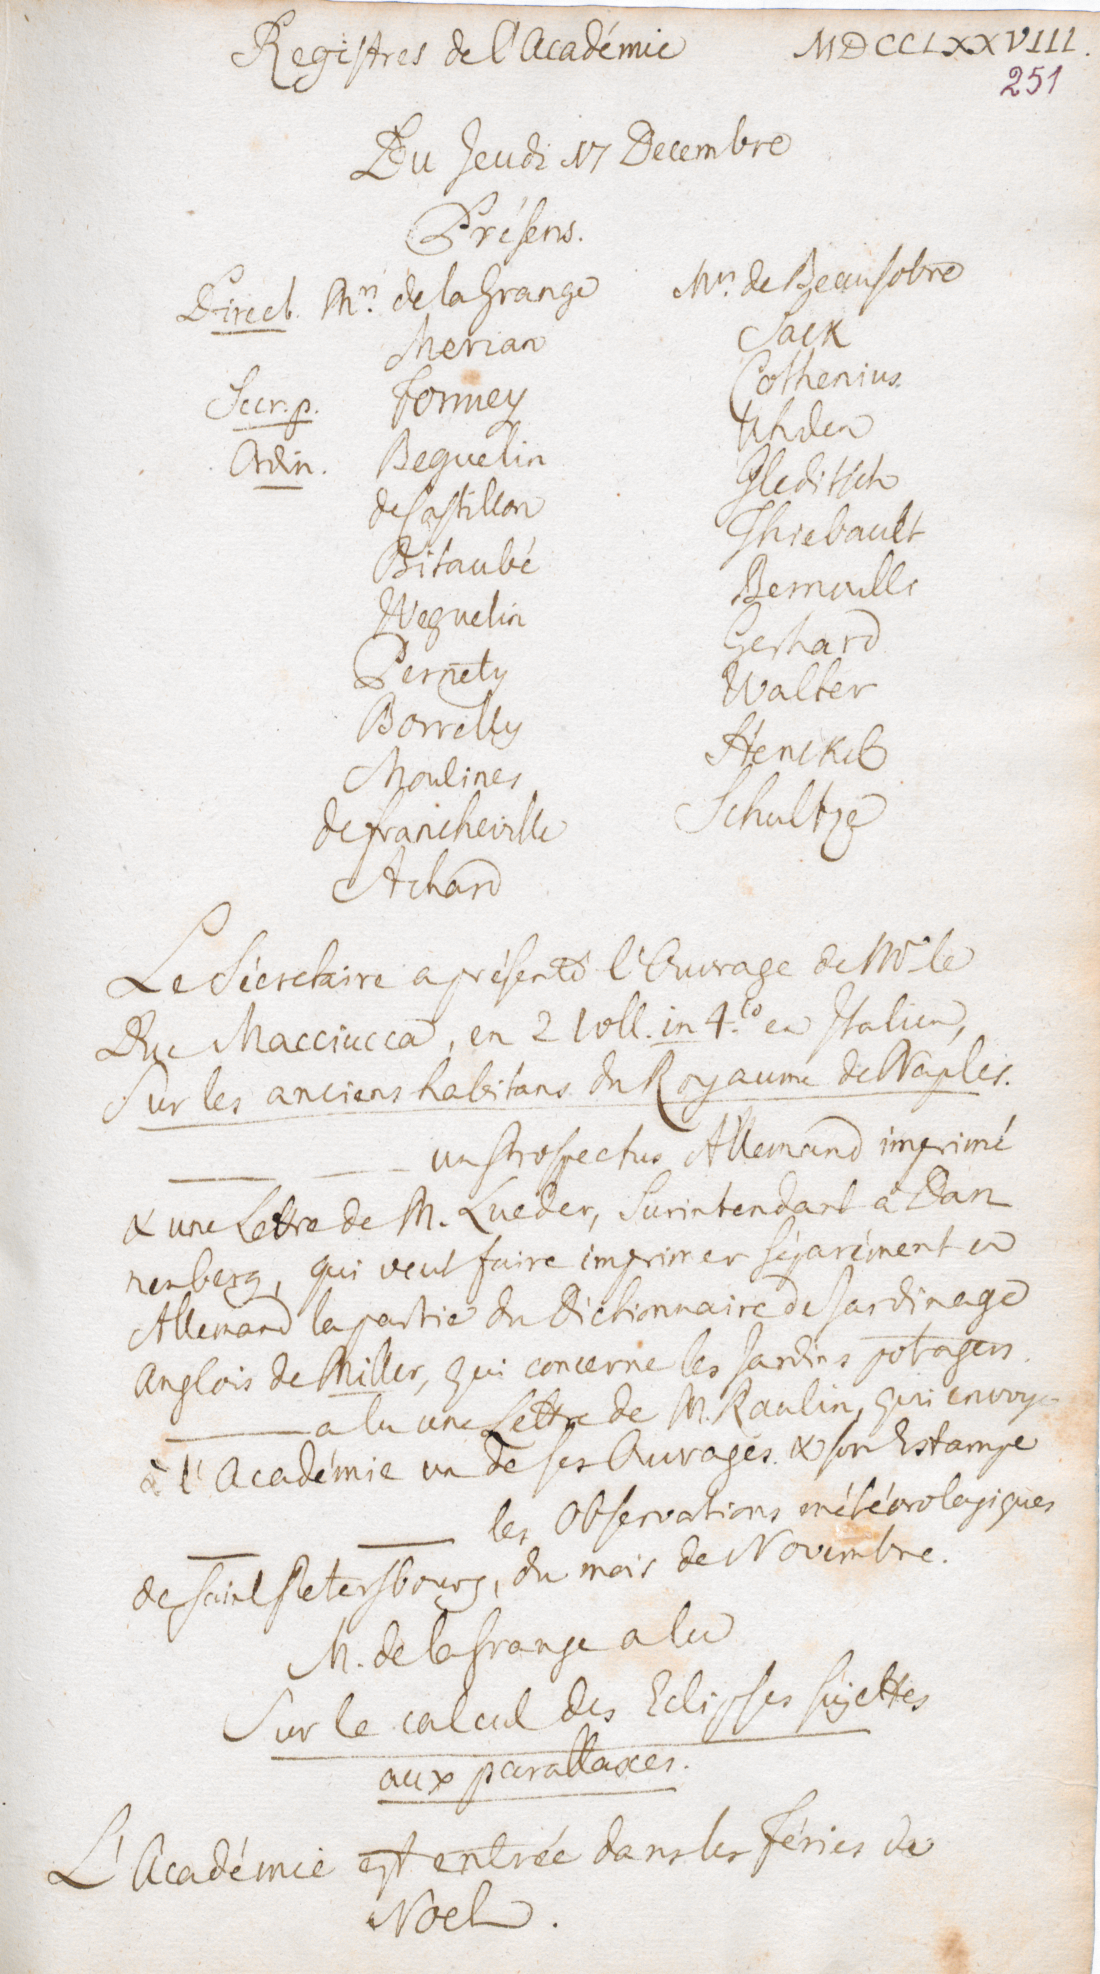 Registres de l'Académie MDCCLXXVIII.
251
Du Jeudi 17 Decembre
Présens.
Direct. Mrs. de la Grange
Merian
Secr. p. Formey
Ordin. Beguelin
de Castillon
Bitaubé
Weguelin
Pernety
Borrelly
Moulines
de Francheville
Achard
Mrs. de Beausobre
Sack
Cothenius
Uhden
Gleditsch
Thiebault
Bernoulli
Gerhard
Walter
Henckel
Schultze
Le Sécretaire a présenté l'Ouvrage de Mr. le
Duc Macciucca, en 2 Voll. in 4.to en Italien,
Sur les anciens habitans du Royaume de Naples.
un Prospectus Allemand imprimé
& une Lettre de M. Lueder, Surintendant à Dan
nenberg, qui veut faire imprimer séparément en
Allemand la partie du Dictionnaire de Jardinage
Anglois de Miller, qui concerne les Jardins potagers.
a lu une Lettre de M. Raulin, qui envoye
à l'Académie un de ses Ouvrages & son Estampe
les Observations météorologiques
de Saint Petersbourg, du mois de Novembre.
M. de la Grange a lu
Sur le calcul des Eclipses sujettes
aux parallaxes.
L'Académie est entrée dans les Féries de
Noel.